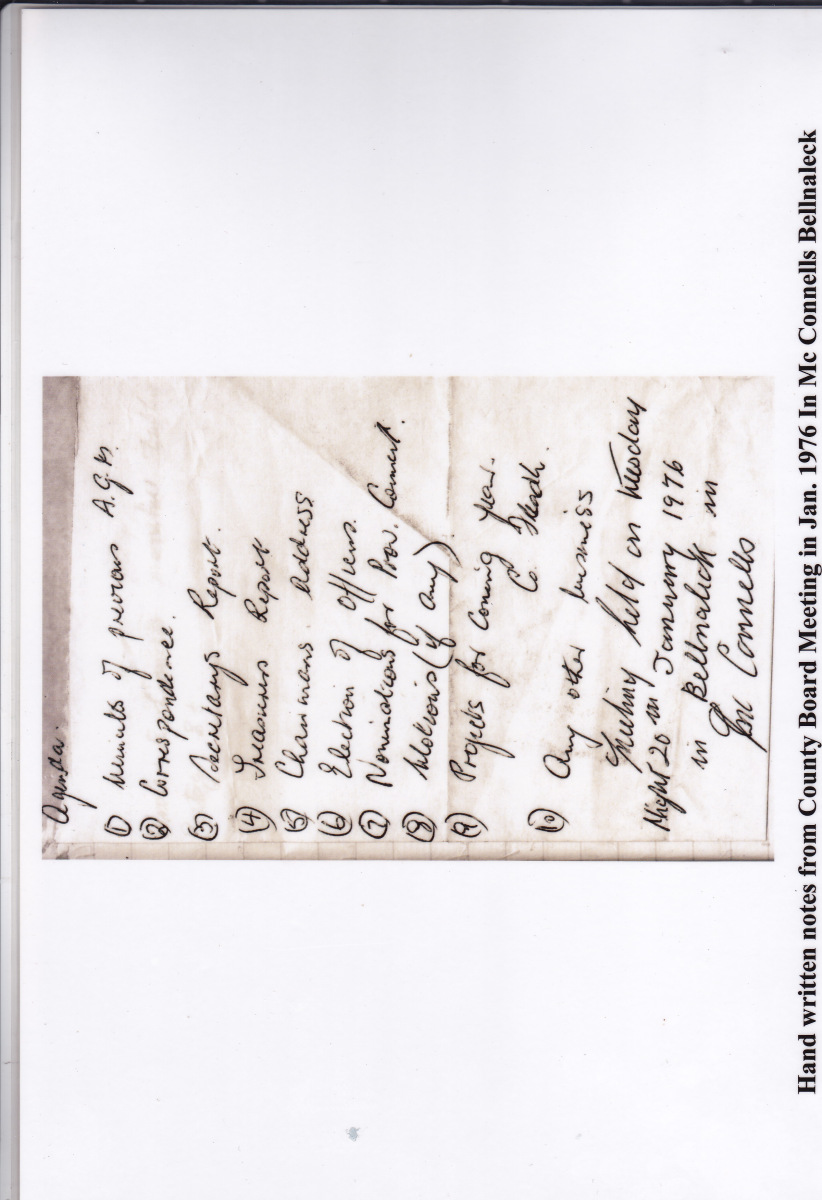 Agenda.
(1) Minutes of previous A.G.M.
(2) Correspondence.
(3) Secretarys Report.
(4) Treasurers Report
(5) Chairmans Address
(6) Election of Officers.
(7) Nominations for Prov. Council.
(8) Motions (if any)
(9) Projects for coming year.
Co.
(10) Any other business
Meeting held on Tuesday
Night 20 in January 1976
in Bellnaleck in
Mc Connells
Hand written notes from County Board Meeting in Jan. 1976 In Mc Connells Bellnaleck